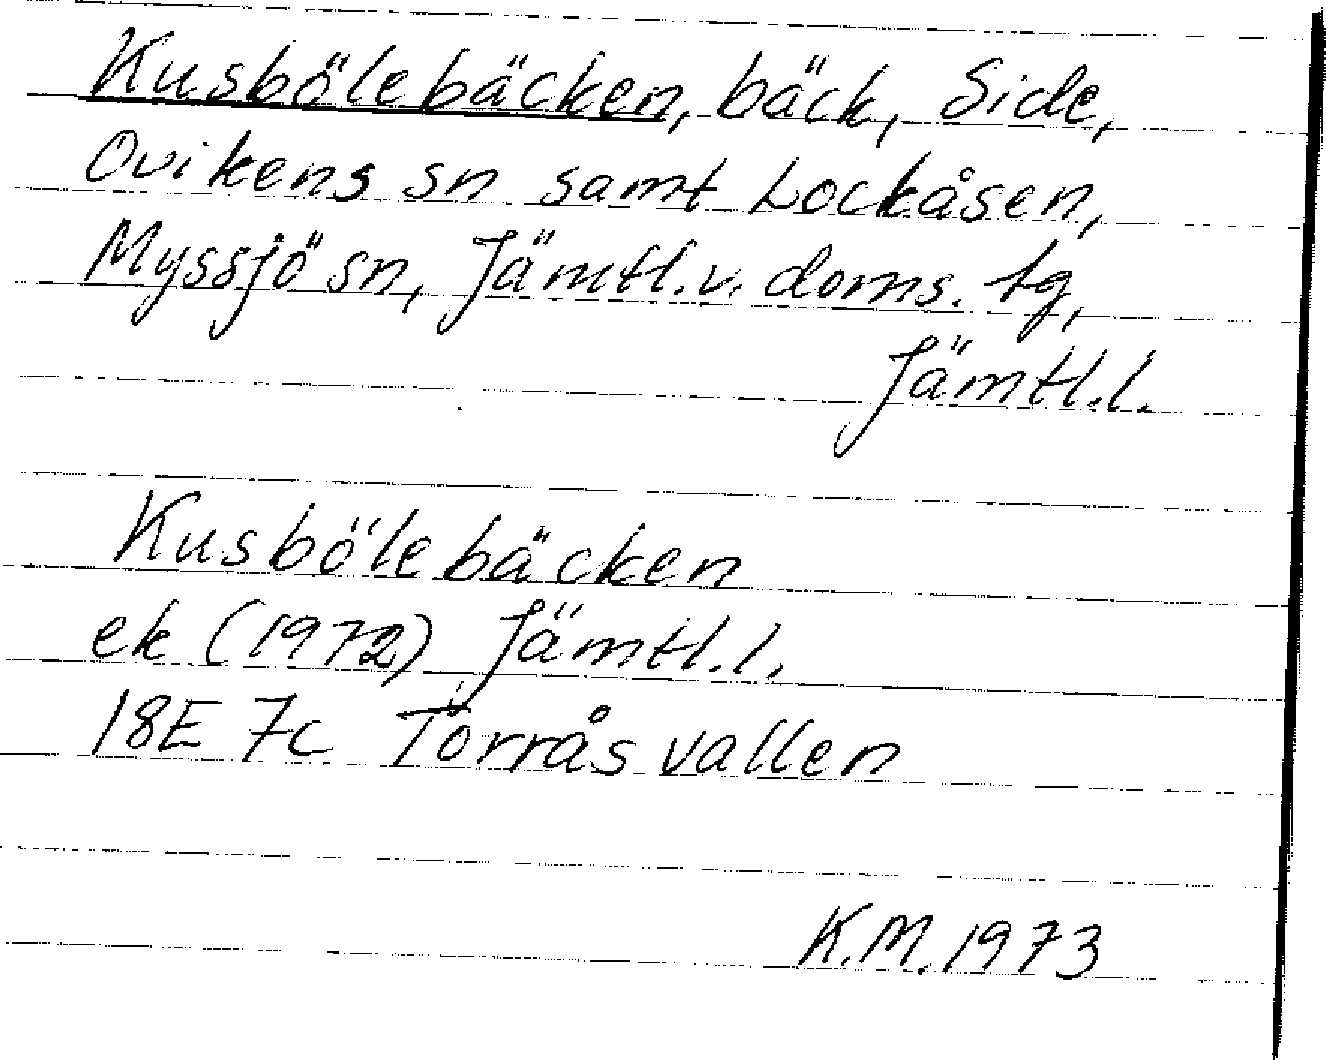 Kusbölebäcken, bäck, Side,
Ovikens sn samt Lockåsen,
Myssjö sn, Jämtl.v. doms. tg,
Jämtl.l.
Kusbölebäcken
ek (1972) Jämtl.l.
18E 7c Torråsvallen
K.M. 1973